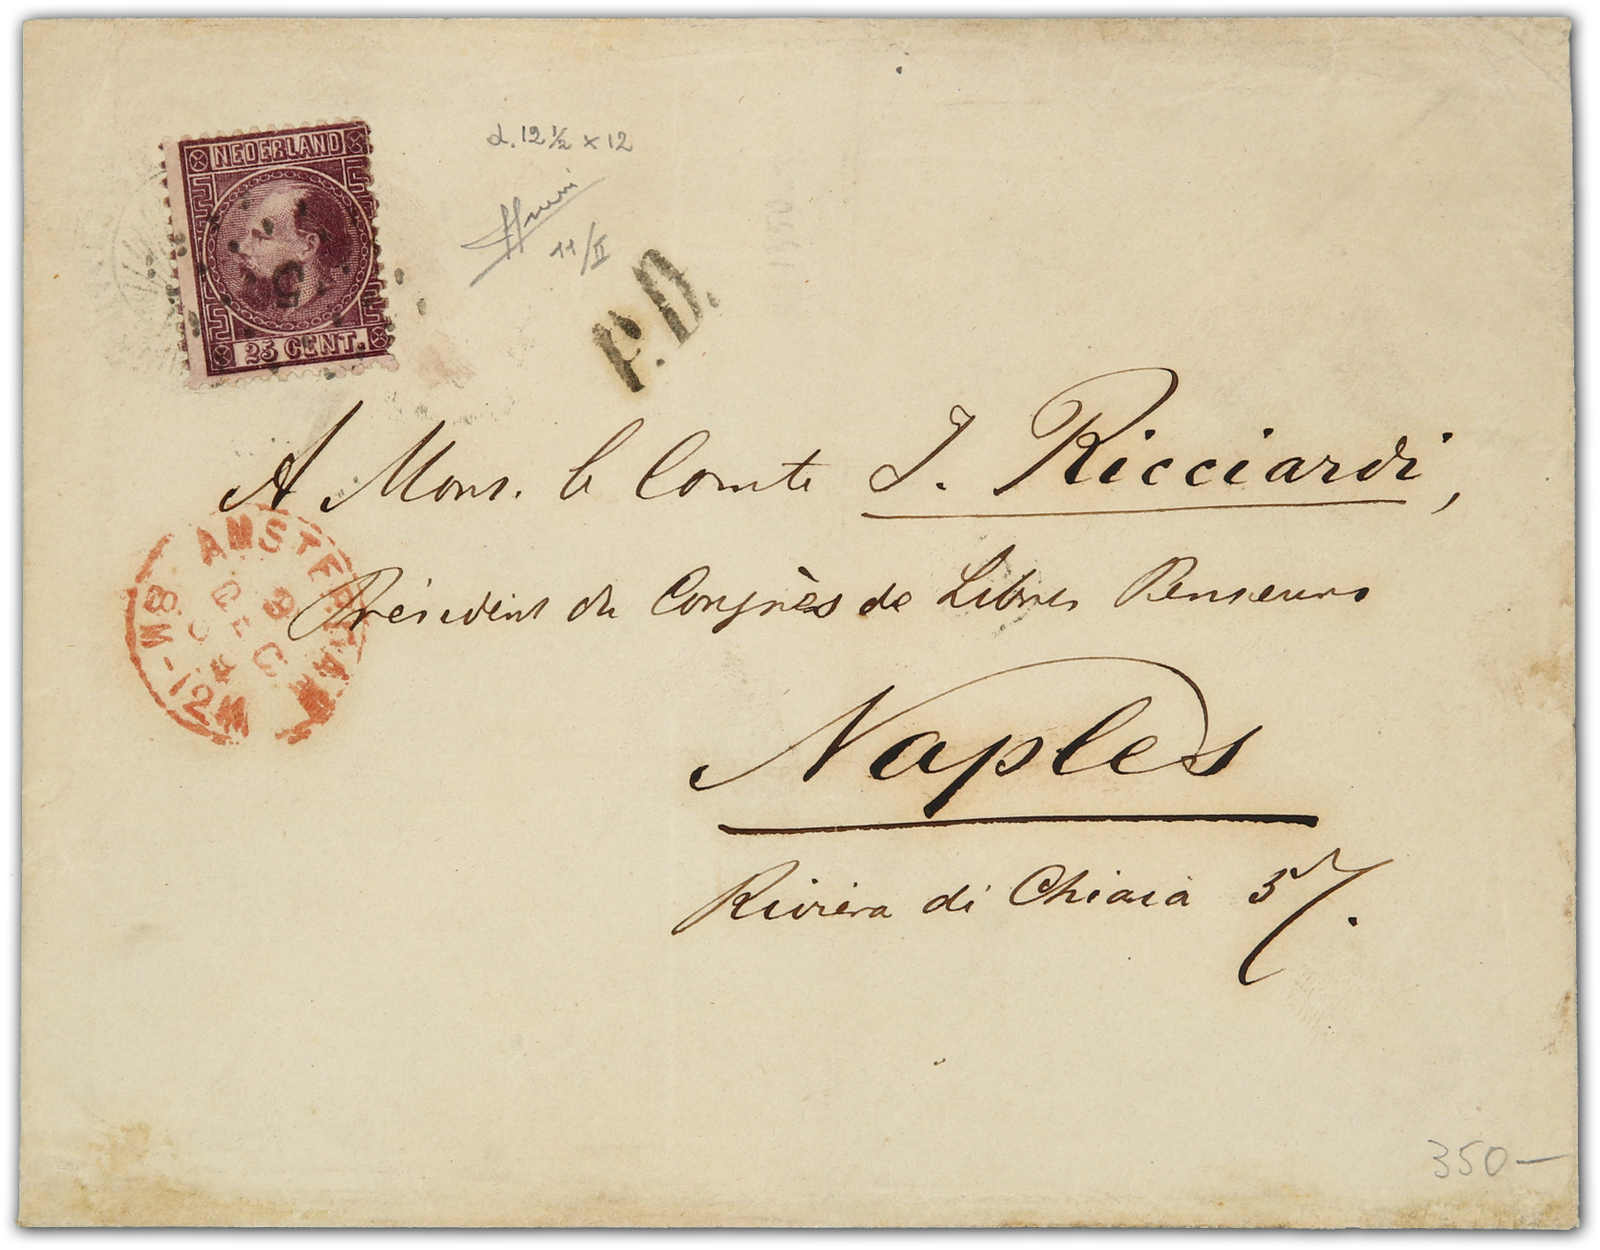 NEDERLAND
5
25 CENT.
d. 12 1/2 x 12
11/II
P.D.
A Mons. le Comte J. Ricciardi,
Président du Congrès de Libres Penseurs
Naples
Riviera di Chiaia 57.
AMSTERDAM
8M-12M
350—